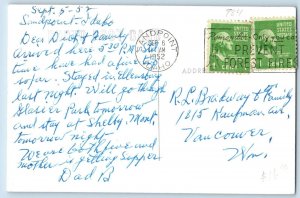 Sept. 5-52
Sandpoint, Idaho
Dear Dick & Family
Arrived here 5:00 P.M.
time have had a fine trip
so far. Stayed in Ellensburg
last night. Will go through
Glacier Park tomorrow
and stay at Shelby, Mont
tomorrow night.
We are both fine and
mother is getting supper.
Dad B
SANDPOINT
SEP 6
1952
IDAHO
PREVENT
FOREST FIRES
ADDRESS
R. L. Bradway & Family
1215 Kaufman Ave.
Vancouver,
Wn.